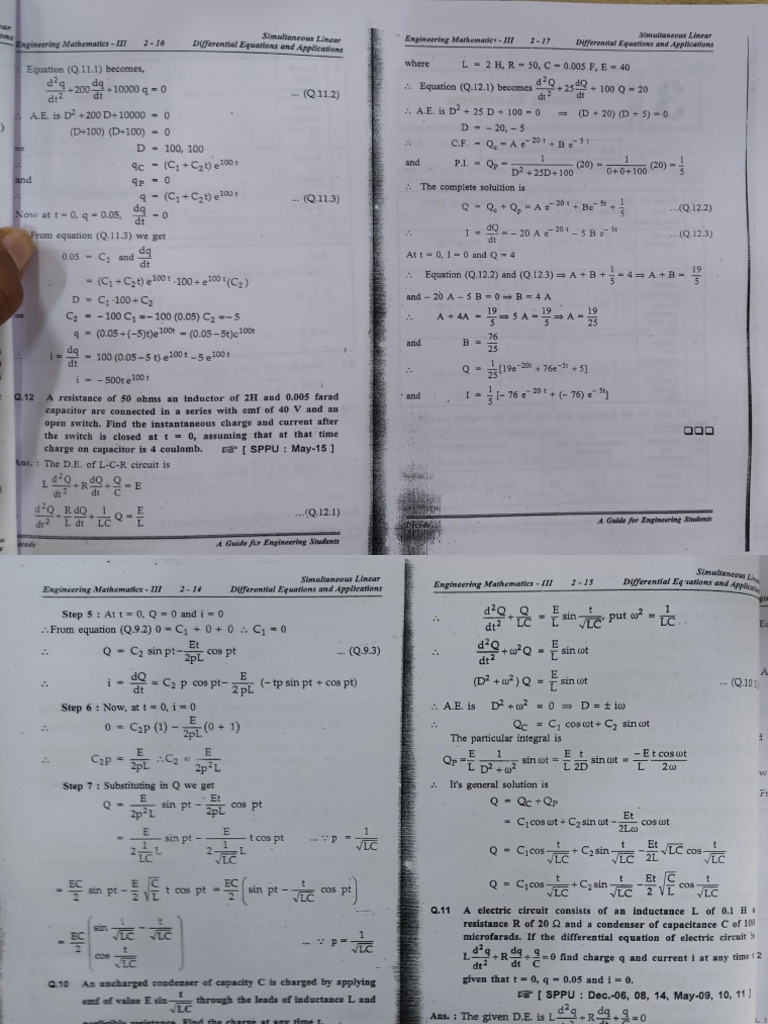 Engineering Mathematics - III 2 - 16 Simultaneous Linear Differential Equations and Applications
∴ Equation (Q.11.1) becomes,
d²q/dt² + 200 dq/dt + 10000 q = 0 ... (Q.11.2)
∴ A.E. is D² + 200 D + 10000 = 0
(D+100) (D+100) = 0
⇒ D = 100, 100
∴ qC = (C₁ + C₂t) e^100 t
and qP = 0
∴ q = (C₁ + C₂t) e^100 t ... (Q.11.3)
Now at t = 0, q = 0.05, dq/dt = 0
From equation (Q.11.3) we get
0.05 = C₁ and dq/dt
= (C₁ + C₂t) e^100 t · 100 + e^100 t (C₂)
D = C₁ · 100 + C₂
⇒ C₂ = – 100 C₁ = – 100 (0.05) C₂ = – 5
q = (0.05 + (–5)t)e^100t = (0.05 – 5t)c^100t
∴ i = dq/dt = 100 (0.05 – 5 t) . e^100 t – 5 e^100 t
i = – 500t e^100 t
Q.12 A resistance of 50 ohms an inductor of 2H and 0.005 farad
capacitor are connected in a series with emf of 40 V and an
open switch. Find the instantaneous charge and current after
the switch is closed at t = 0, assuming that at that time
charge on capacitor is 4 coulomb. ☞ [ SPPU : May-15 ]
Ans. : The D.E. of L-C-R circuit is
L d²Q/dt² + R dQ/dt + Q/C = E
d²Q/dt² + R/L dQ/dt + 1/LC Q = E/L ...(Q.12.1)
A Guide for Engineering Students
Engineering Mathematics - III 2 - 17 Simultaneous Linear Differential Equations and Applications
where L = 2 H, R = 50, C = 0.005 F, E = 40
∴ Equation (Q.12.1) becomes d²Q/dt² + 25 dQ/dt + 100 Q = 20
∴ A.E. is D² + 25 D + 100 = 0 ⇒ (D + 20) (D + 5) = 0
D = – 20, – 5
∴ C.F. = Qc = A e^– 20 t + B e^– 5 t
and P.I. = Qp = 1/(D² + 25D + 100) (20) = 1/(0+0+100) (20) = 1/5
∴ The complete solution is
Q = Qc + Qp = A e^– 20 t + Be^– 5t + 1/5 ...(Q.12.2)
∴ I = dQ/dt = – 20 A e^– 20 t – 5 B e^– 5t ...(Q.12.3)
At t = 0, I = 0 and Q = 4
∴ Equation (Q.12.2) and (Q.12.3) ⇒ A + B + 1/5 = 4 ⇒ A + B = 19/5
and – 20 A – 5 B = 0 ⇒ B = 4 A
∴ A + 4A = 19/5 ⇒ 5 A = 19/5 ⇒ A = 19/25
and B = 76/25
∴ Q = 1/25 [19e^–20t + 76e^–5t + 5]
and I = 1/5 [– 76 e^– 20 t + (– 76) e^– 5t]
Decode A Guide for Engineering Students
Engineering Mathematics - III 2 - 14 Simultaneous Linear Differential Equations and Applications
Step 5 : At t = 0, Q = 0 and i = 0
∴ From equation (Q.9.2) 0 = C₁ + 0 + 0 ∴ C₁ = 0
∴ Q = C₂ sin pt – Et/2pL cos pt ... (Q.9.3)
∴ i = dQ/dt = C₂ p cos pt – E/2 pL (– tp sin pt + cos pt)
Step 6 : Now, at t = 0, i = 0
∴ 0 = C₂p (1) – E/2pL (0 + 1)
∴ C₂p = E/2pL ∴ C₂ = E/2p²L
Step 7 : Substituting in Q we get
Q = E/2p²L sin pt – Et/2pL cos pt
= E/(2 1/LC L) sin pt – E/(2 1/√LC L) t cos pt ... ∵ p = 1/√LC
= EC/2 sin pt – E/2 √(C/L) t cos pt = EC/2 (sin pt – t/√LC cos pt)
= EC/2 (sin t/√LC – t/√LC cos t/√LC) ... ∵ p = 1/√LC
Q.10 An uncharged condenser of capacity C is charged by applying
emf of value E sin t/√LC through the leads of inductance L and
negligible resistance. Find the charge at any time t.
Engineering Mathematics - III 2 - 15 Simultaneous Linear Differential Equations and Applications
∴ d²Q/dt² + Q/LC = E/L sin t/√LC, put ω² = 1/LC
∴ d²Q/dt² + ω²Q = E/L sin ωt
(D² + ω²) Q = E/L sin ωt ... (Q.10.1
∴ A.E. is D² + ω² = 0 ⇒ D = ± iω
∴ QC = C₁ cos ωt + C₂ sin ωt
The particular integral is
QP = E/L 1/(D² + ω²) sin ωt = E/L t/2D sin ωt = –E/L t cos ωt/2ω
∴ It's general solution is
Q = QC + QP
= C₁cos ωt + C₂ sin ωt – Et/2Lω cos ωt
Q = C₁cos t/√LC + C₂ sin t/√LC – Et/2L √LC cos t/√LC
Q = C₁cos t/√LC + C₂ sin t/√LC – Et/2 √(C/L) cos t/√LC
Q.11 A electric circuit consists of an inductance L of 0.1 H a
resistance R of 20 Ω and a condenser of capacitance C of 100
microfarads. If the differential equation of electric circuit is
L d²q/dt² + R dq/dt + q/C = 0 find charge q and current i at any time t
given that t = 0, q = 0.05 and i = 0.
☞ [ SPPU : Dec.-06, 08, 14, May-09, 10, 11 ]
Ans. : The given D.E. is L d²q/dt² + R dq/dt + q/C = 0